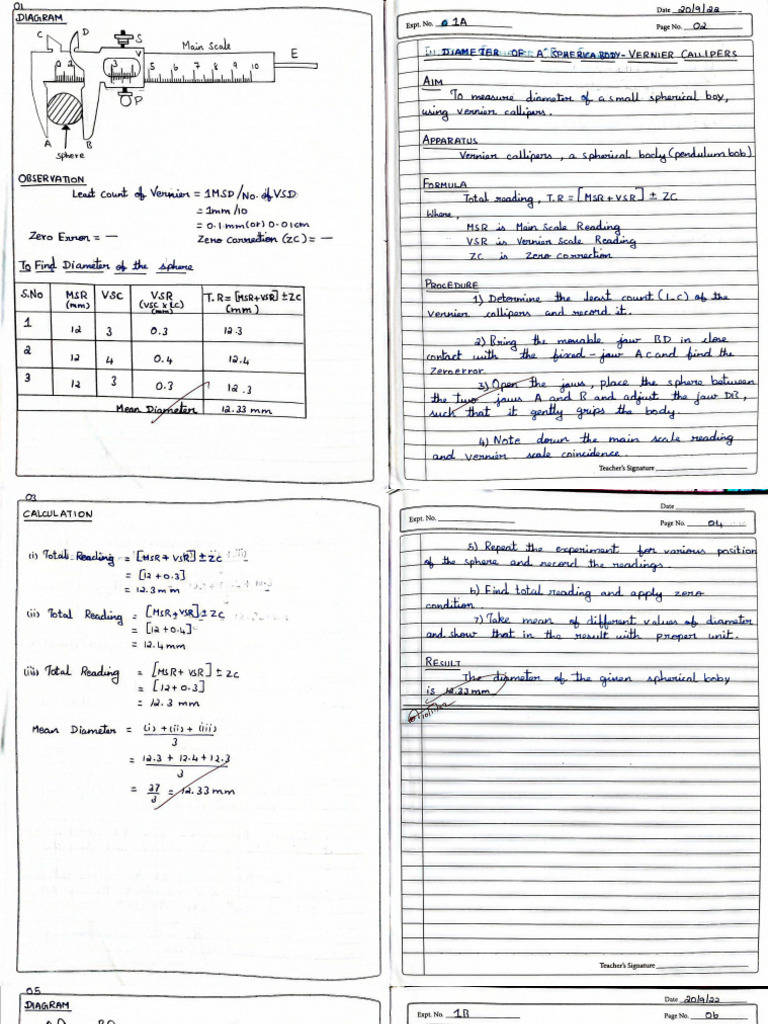 01
DIAGRAM
C D S
V Main Scale E
0 2 3 5 6 7 8 9 10
P
A B
sphere
OBSERVATION
Least Count of Vernier = 1MSD/No. of VSD
= 1mm/10
= 0.1mm (or) 0.01cm
Zero Error = — Zero Correction (ZC) = —
To Find Diameter of the sphere
S.No MSR (mm) VSC VSR (VSC x LC) (mm) T.R = [MSR+VSR] ± ZC (mm)
1 12 3 0.3 12.3
2 12 4 0.4 12.4
3 12 3 0.3 12.3
Mean Diameter 12.33 mm
Date 20/9/22
Expt. No. 1A Page No. 02
DIAMETER OF A SPHERICA BODY-VERNIER CALLIPERS
AIM
To measure diameter of a small spherical boy,
using vernier callipers.
APPARATUS
Vernier callipers, a spherical body (pendulum bob)
FORMULA
Total reading, T.R = [MSR+VSR] ± ZC
Where,
MSR is Main Scale Reading
VSR is Vernier Scale Reading
ZC is Zero correction
PROCEDURE
1) Determine the least count (L.C) of the
vernier callipers and record it.
2) Bring the movable jaw BD in close
contact with the fixed-jaw AC and find the
Zero error.
3) Open the jaws, place the sphere between
the two jaws A and B and adjust the jaw DB,
such that it gently grips the body.
4) Note down the main scale reading
and vernier scale coincidence.
Teacher's Signature
03
CALCULATION
(i) Total Reading = [MSR + VSR] ± ZC
= [12 + 0.3]
= 12.3 mm
(ii) Total Reading = [MSR + VSR] ± ZC
= [12 + 0.4]
= 12.4 mm
(iii) Total Reading = [MSR + VSR] ± ZC
= [12 + 0.3]
= 12.3 mm
Mean Diameter = (i) + (ii) + (iii)
3
= 12.3 + 12.4 + 12.3
3
= 37/3 = 12.33 mm
Date
Expt. No. Page No. 04
5) Repeat the experiment for various position
of the sphere and record the readings.
6) Find total reading and apply zero
condition.
7) Take mean of different values of diameter
and show that in the result with proper unit.
RESULT
The diameter of the given spherical boby
is 12.33 mm
Teacher's Signature
05
DIAGRAM
Date 20/9/22
Expt. No. 1B Page No. 06